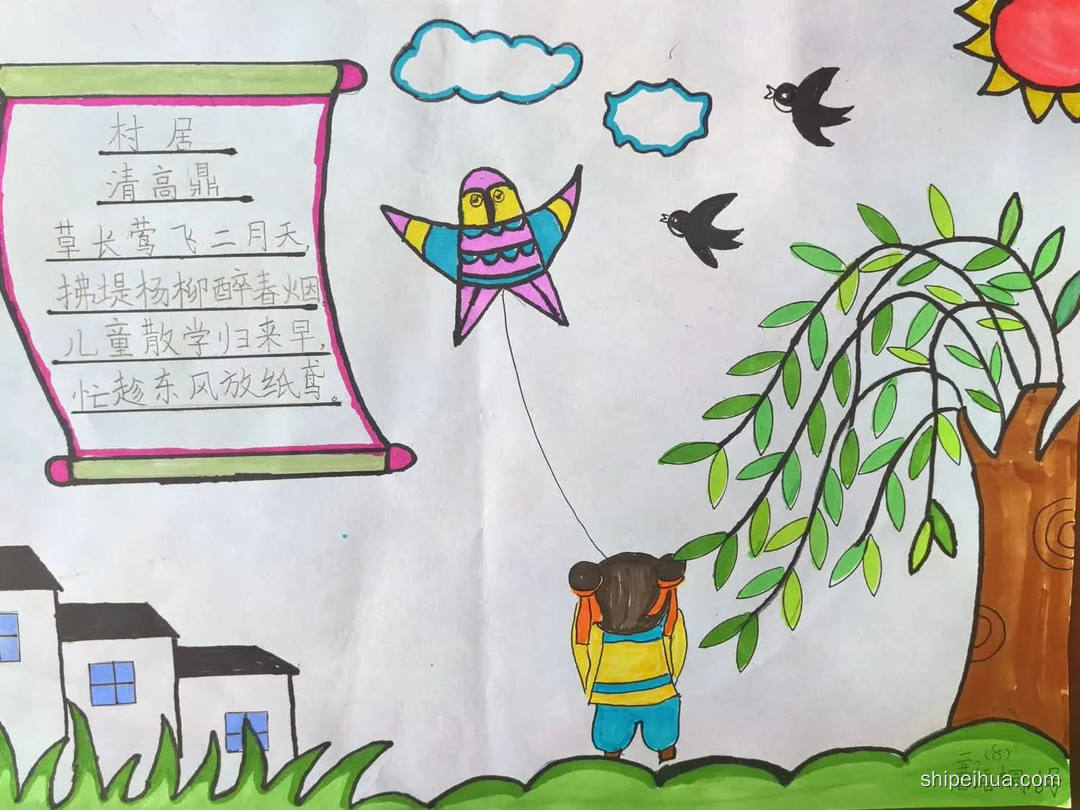 村居
清高鼎
草长莺飞二月天,
拂堤杨柳醉春烟
儿童散学归来早,
忙趁东风放纸鸢。
(8)
shipeihua.com